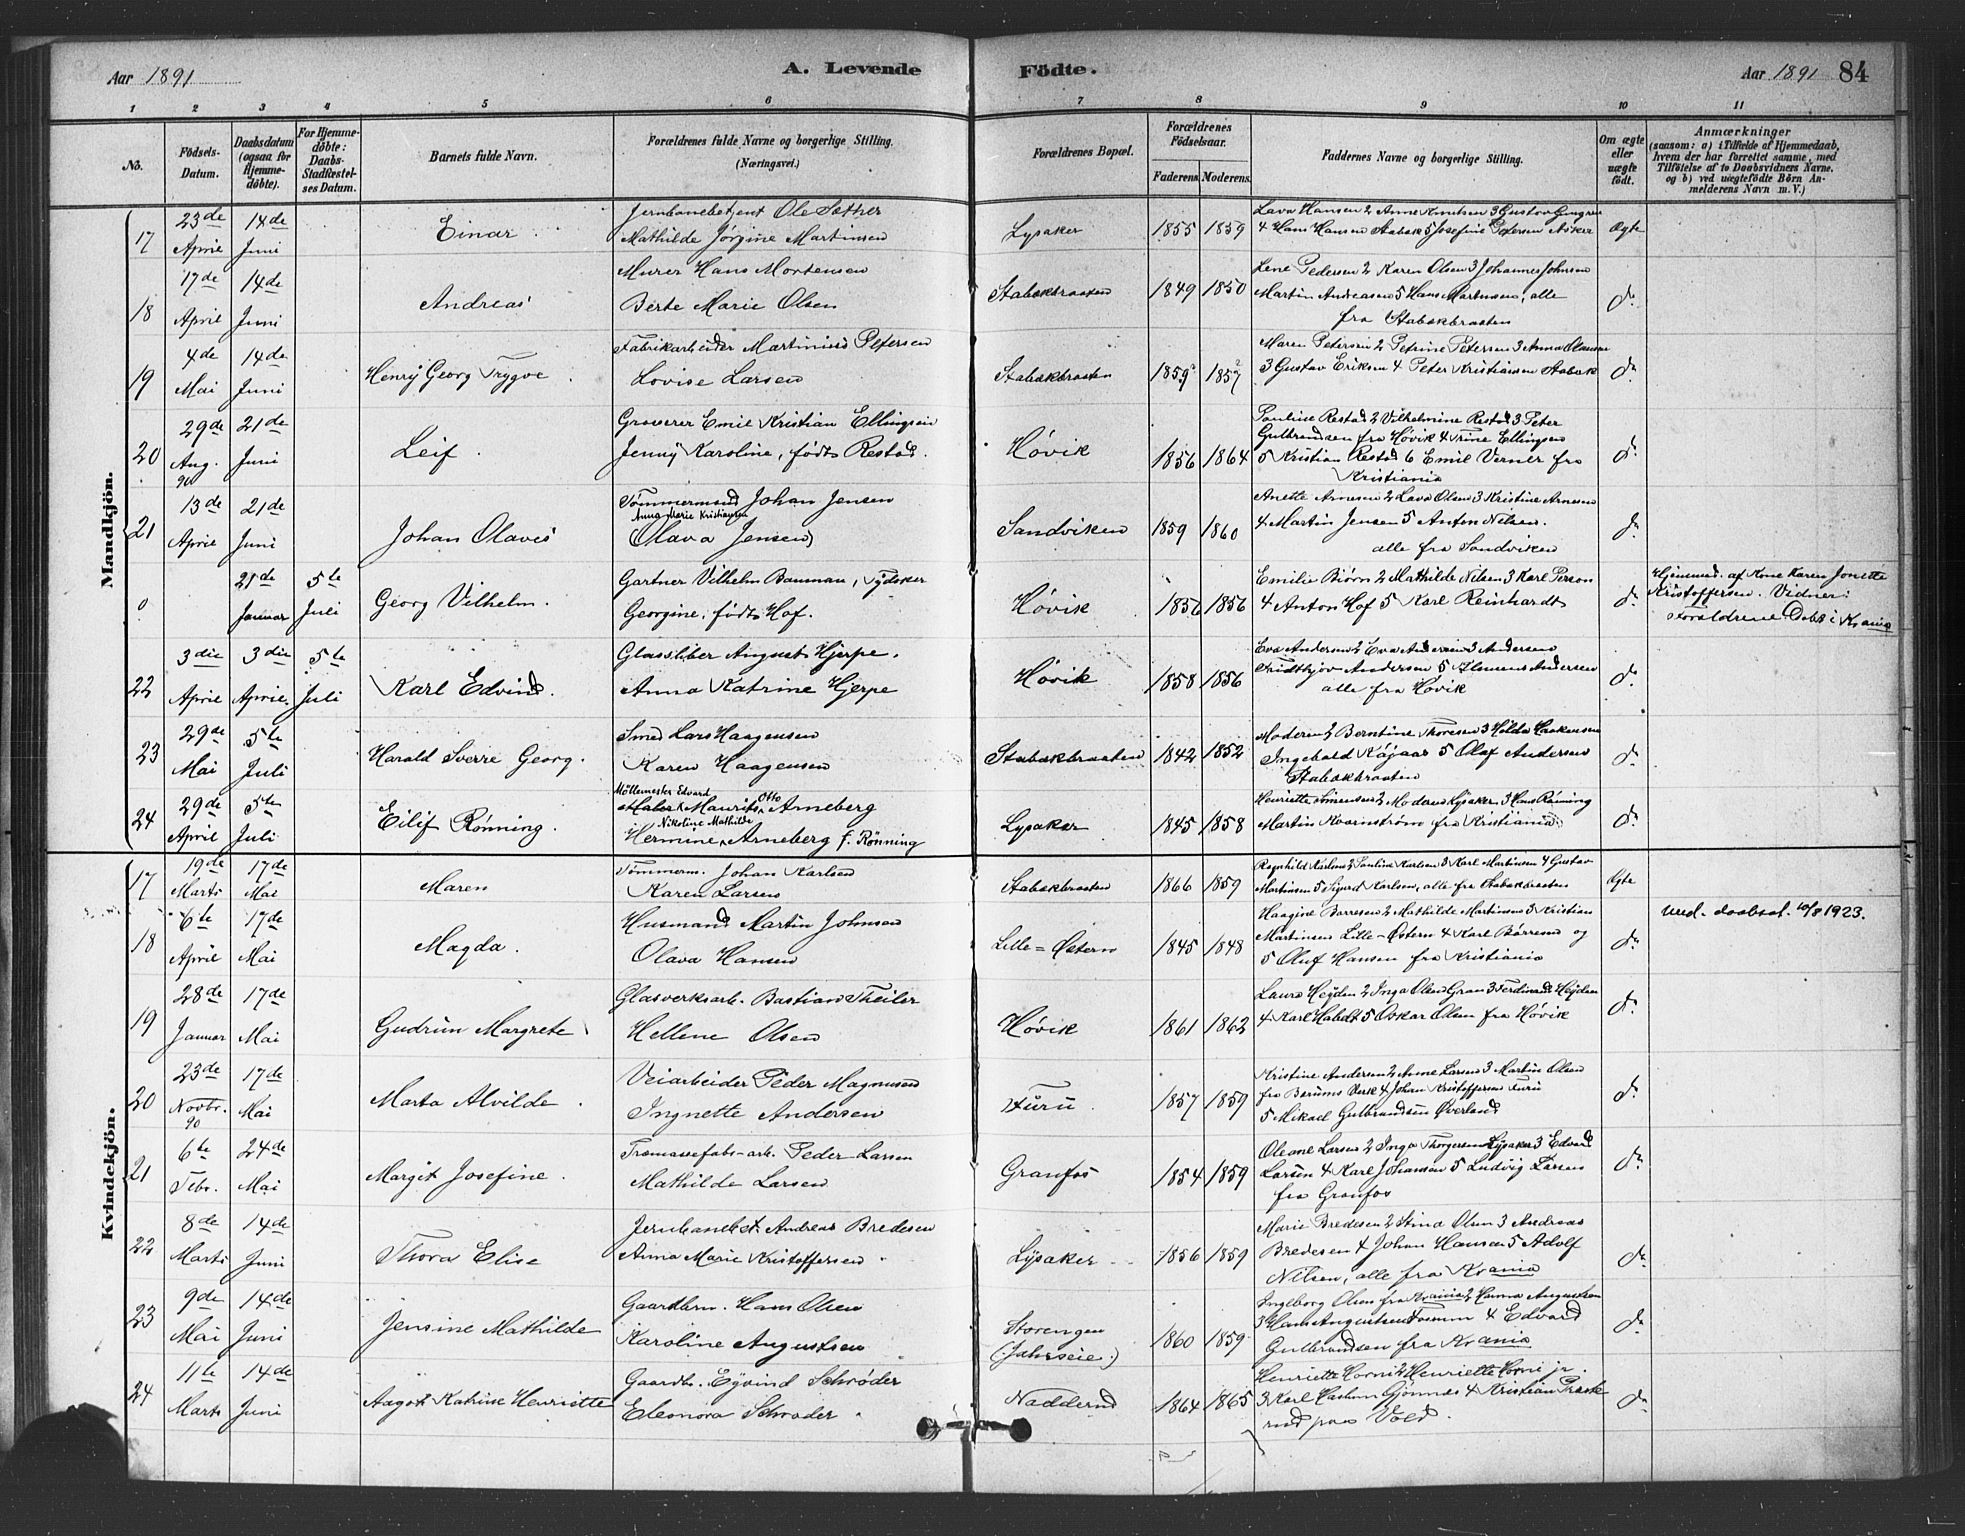 Aar 1891
A. Levende Födte.
Aar 1891 84
1 2 3 4 5 6 7 8 9 10 11
No.
Födsels-Datum.
Daabsdatum (ogsaa for Hjemme-döbte).
For Hjemme-döbte: Daabs-Stadfæstel-ses Datum.
Barnets fulde Navn.
Forældrenes fulde Navne og borgerlige Stilling.
(Næringsvei.)
Forældrenes Bopæl.
Forældrenes Födselsaar.
Faderens Moderens.
Faddernes Navne og borgerlige Stilling.
Om ægte eller uægte födt.
Anmærkninger
(saasom: a) i Tilfælde af Hjemmedaab,
hvem der har forrettet samme, med
Tilföielse af to Daabsvidners Navne.
og b) ved uægtefödte Börn An-
melderens Navn m. V.)
Mandkjön.
17 23de April 14de Juni Einar
Jernbanebetjent Ole Sether
Mathilde Jørgine Martinsen
Lysaker 1855 1859
Lava Hansen 2 Anne Knutsen 3 Gustav
4 Hans Hansen Stabæk 5 Josefine Petersen Asker
Ægte
18 17de April 14de Juni Andreas
Murer Hans Mortensen
Berte Marie Olsen
Stabækbraaten 1849 1850
Lene Pedersen 2 Karen Olsen 3 Johannes Johnsen
Martin Andreasen 5 Hans Martinsen, alle
fra Stabækbraaten
do
19 4de Mai 14de Juni Henry Georg Trygve.
Fabrikarbeider Martinius Petersen
Lovise Larsen
Stabækbraaten 1859 1857
Maren Petersen 2 Petrine Petersen 3 Anna Olausen
3 Gustav Eriksen 4 Peter Kristiansen Stabæk
do
20 29de Aug. 90 21de Juni Leif.
Graverer Emil Kristian Ellingsen
Jenny Karoline, født Restad.
Høvik 1856 1864
Pauline Restad 2 Vilhelmine Restad 3 Peter
Gulbrandsen fra Høvik 4 Trine Ellingsen
5 Kristian Restad 6 Emil Verner fra
Kristiania
do
21 13de April 21de Juni Johan Olaves
Tømmermand Johan Jensen
Anna Marie Kristiansen
(Olava Jensen)
Sandviken 1859 1860
Anette Arnesen 2 Lava Olsen 3 Kristine Arnesen
4 Martin Jensen 5 Anton Nilsen.
alle fra Sandviken
do
0 21de Januar 5te Juli Georg Vilhelm.
Gartner Vilhelm Bauman, Tydsker
Georgine, født Hof.
Høvik 1856 1856
Emilie Biørn 2 Mathilde Nilsen 3 Karl Person
4 Anton Hof 5 Karl Reinhardt
do
Hjemmed. af Kone Karen Jonette
Kristoffersen. Vidner:
Forældrene Døbt i Krania
22 3die April 3die April. 5te Juli Karl Edvind.
Glassliber August Hjerpe.
Anna Katrine Hjerpe
Høvik 1858 1856
Eva Andersen 2 Eva Andersen 3 Andersen
Fridthjov Andersen 5 Klemens Andersen
alle fra Høvik
do
23 29de Mai 5te Juli Harald Sverre Georg.
Smed Lars Haagensen
Karen Haagensen
Stabækbraaten 1842 1852
Moderen 2 Berntine Thoresen 3 Hilda Haakensen
Ingebald Kajaas 5 Olaf Andersen
Stabækbraaten
do
24 29de April 5te Juli Eilif Rønning.
Möllemester Edvard
Maler Maurits Otto Arneberg
Nikoline Mathilde
Hermine Arneberg f. Rønning
Lysaker 1845 1858
Henriette Simensen 2 Moderen Lysaker 3 Hans Rønning
Martin Kvarnstrøm fra Kristiania.
do
Kvindekjön.
17 19de Marts 17de Mai Maren
Tømmerm. Johan Karlsen
Karen Larsen
Stabækbraaten 1866 1859
Ragnhild Karlsen 2 Paulina Karlsen 3 Karl Martinsen 4 Gustav
Martinsen 5 Sigurd Karlsen, alle fra Stabækbraaten
Ægte
18 6te April 17de Mai Magda.
Husmand Martin Johnsen
Olava Hansen
Lille=Østern 1845 1848
Haagine Børresen 2 Mathilde Martinsen 3 Kristian
Martinsen Lille-Østern 4 Karl Børresen og
5 Oluf Hansen fra Kristiania
do
Utled. daabsat. 10/8 1923.
19 28de Januar 17de Mai Gudrun Margrete
Glasverksarb. Bastian Theiler
Hellene Olsen
Høvik 1861 1862
Laura Heyden 2 Inga Olsen Gran 3 Ferdinand Heyden
4 Karl Habedt 5 Oskar Olsen fra Høvik
do
20 23de Novbr. 90 17de Mai Marta Alvilde.
Veiarbeider Peder Magnusen
Ingnette Andersen
Furu. 1857 1859
Kristine Andersen 2 Anne Larsen 3 Martin Olsen
fra Bærums Verk 4 Johan Kristoffersen Furu
5 Mikael Gulbrandsen Øverland
do
21 6te Febr. 24de Mai Margit Josefine.
Træmassefabr-arb. Peder Larsen
Mathilde Larsen
Granfos 1854 1859
Oleane Larsen 2 Inga Thorgersen Lysaker 3 Edvard
Larsen 4 Karl Johansen 5 Ludvig Larsen
fra Granfos
do
22 8de Marts 14de Juni Thora Elise
Jernbanebet. Andreas Bredesen
Anna Marie Kristoffersen.
Lysaker 1856 1859
Marie Bredesen 2 Stina Olsen 3 Andreas
Bredesen 4 Johan Hansen 5 Adolf
Nilsen, alle fra Krania
do
23 9de Mai 14de Juni Jensine Mathilde
Gaardbrn. Hans Olsen
Karoline Augustsen
Storengen
(Jahrseie.) 1860 1859
Ingeborg Olsen fra Krania 2 Hanna Augustsen
3 Hans Augustsen 4 Edvard
Gulbrandsen fra Krania
do
24 11te Marts 14de Juni Aagot Katrine Henriette
Gaardbr. Eyvind Schrøder
Eleonora Schrøder.
Nadderud 1864 1865
Henriette Horni 2 Henriette Horni jr.
3 Karl Haslum Gjønnes 4 Kristian
rud paa Vold.
do